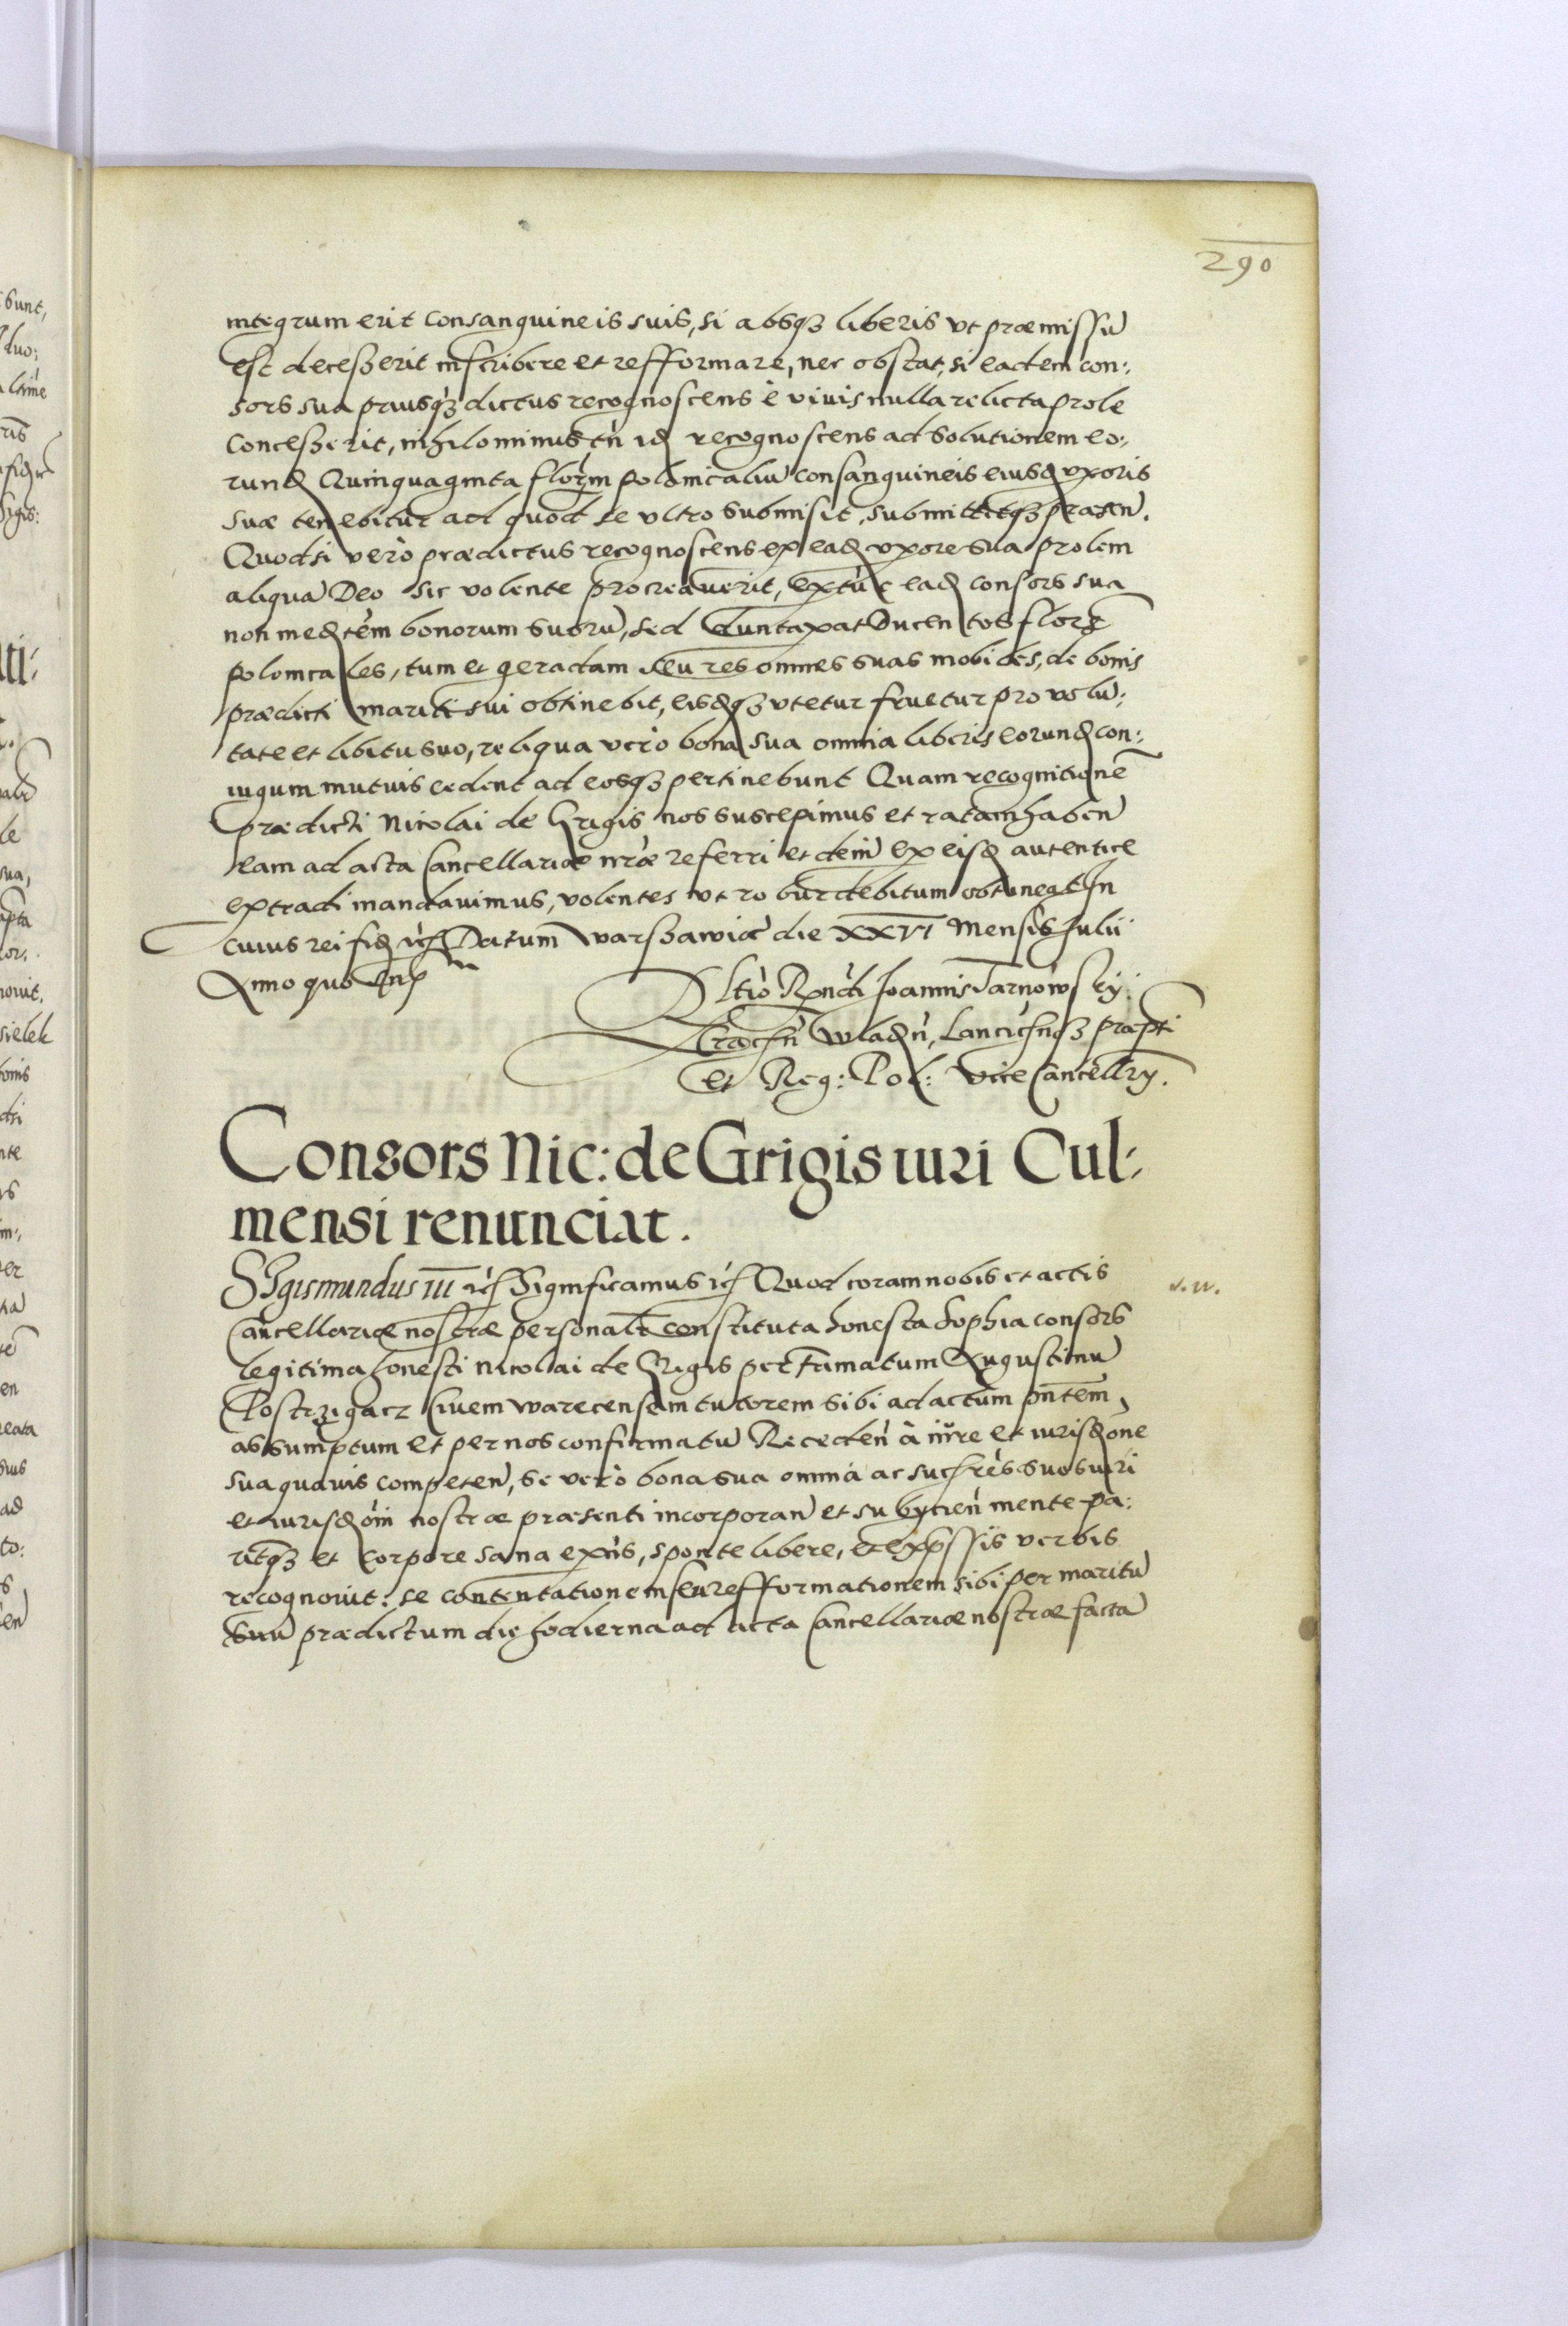 290
integrum erit consanguineis suis, si absqꝫ liberis vt præmissū
est deceszerit inscribere et refformare, nec obstat, si eadem con:
sors sua priusqꝫ dictus recognoscens è viuis nulla relicta prole
conceszerit, nihilominus tñ idꝫ recognoscens ad solutionem eo:
rundꝫ Quinquaginta florm polonicaliū consanguineis eiusdꝫ vxoris
suæ tenebitur ad quod se vltro submisit, submittitqꝫ præsen.
Quodsi verò prædictus recognoscens ex eadꝫ vxore sua prolem
aliquā Deo sic volente procreauerit, extūc eadꝫ consors sua
non medtem bonorum suorū, sed duntaxat Ducentos flor
polonicales, tum et geradam seu res omnes suas mobiles, de bonis
prædicti mariti sui obtinebit, eisdqꝫ vtetur fruetur pro volū:
tate et libitu suo, reliqua verò bona sua omnia liberis eorundꝫ con:
iugum mutuis cedent ad eosqꝫ pertinebunt Quam recognitionē
prædicti Nicolai de Grigis nos suscepimus et ratam haben
eam ad acta Cancellariæ nræ referri et dein ex eisdꝫ autentice
extradi mandauimus, volentes vt robur debitum obtineat In
cuius rei fidꝫ ꝛc Datum Warszawiæ die XXVI Mensis Julii
Anno quo
Rltio Rndi Joannis Tarnowsky:
Wladn, Lancicn qꝫ præpti
et Reg: Pol: Vicecancellry.
Consors Nic: de Grigis iuri Cul:
mensi renunciat.
Sigismundus III ꝛc Significamus ꝛc Quod coram nobis et actis
Cancellariæ nostræ personalr constituta honesta Sophia consors
legitima honesti Nicolai de Grigis per Famatum Augustinū
Postrzigacz Ciuem Warecensem tutorem sibi ad actum pntem,
assumptum et per nos confirmatū Receden à iure et iurisdone
sua quauis competen, se verò bona sua omnia ac sucres suos iuri
et iurisdoni nostræ præsenti incorporan et subycien mente pa:
ritqꝫ et corpore sana exns, sponte libere, et expssis verbis
recognouit: se contentationem seu refformationem sibi per maritū
suū prædictum die hodierna ad acta Cancellariæ nostræ factā